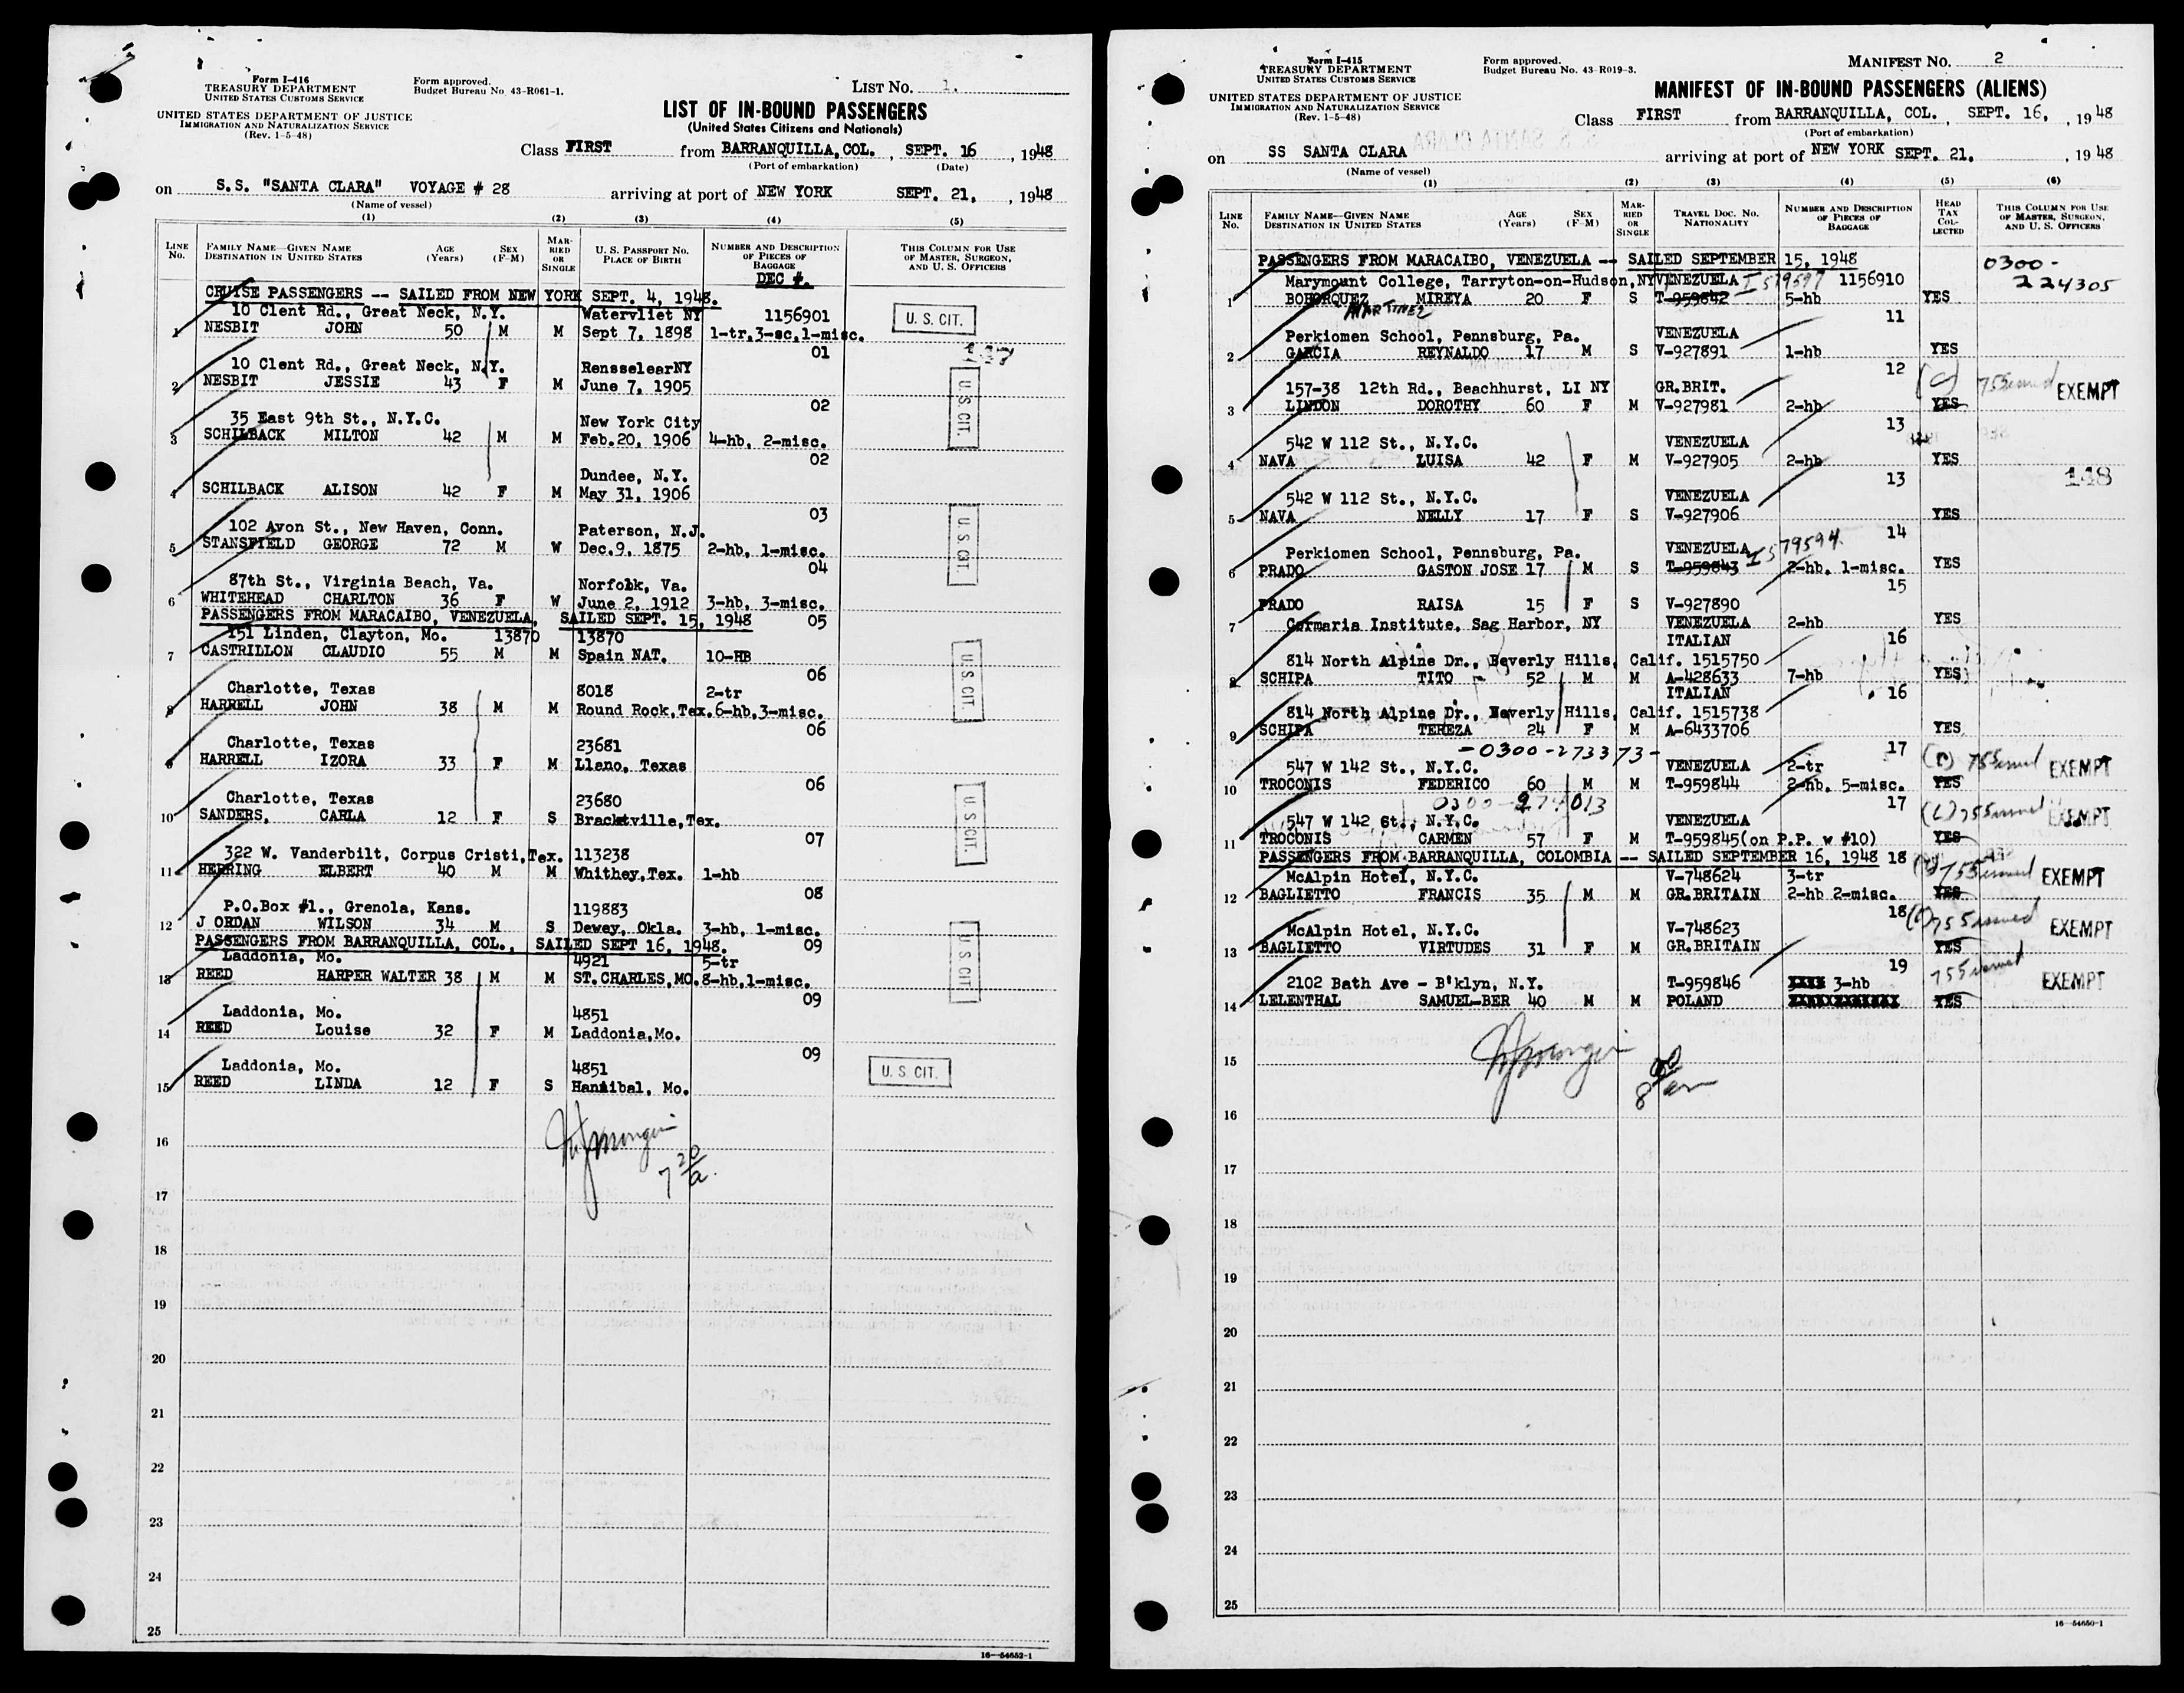 Form I-416
TREASURY DEPARTMENT
UNITED STATES CUSTOMS SERVICE
UNITED STATES DEPARTMENT OF JUSTICE
IMMIGRATION AND NATURALIZATION SERVICE
(Rev. 1-5-48)
Form approved.
Budget Bureau No. 43-R061-1.
LIST NO. 1.
LIST OF IN-BOUND PASSENGERS
(United States Citizens and Nationals)
Class FIRST from BARRANQUILLA, COL. , SEPT. 16 , 1948
(Port of embarkation) (Date)
on S.S. "SANTA CLARA" VOYAGE # 28 arriving at port of NEW YORK SEPT. 21, , 1948
(Name of vessel)
(1) (2) (3) (4) (5)
LINE NO. FAMILY NAME—GIVEN NAME DESTINATION IN UNITED STATES AGE (Years) SEX (F-M) MARRIED OR SINGLE U. S. PASSPORT NO. PLACE OF BIRTH NUMBER AND DESCRIPTION OF PIECES OF BAGGAGE THIS COLUMN FOR USE OF MASTER, SURGEON, AND U. S. OFFICERS
DEC #.
CRUISE PASSENGERS -- SAILED FROM NEW YORK SEPT. 4, 1948.
10 Clent Rd., Great Neck, N.Y. Watervliet NY 1156901
1 NESBIT JOHN 50 M M Sept 7, 1898 1-tr,3-sc,1-misc. U. S. CIT.
01
10 Clent Rd., Great Neck, N.Y. RensselearNY
2 NESBIT JESSIE 43 F M June 7, 1905 U. S. CIT.
02
35 East 9th St., N.Y.C. New York City
3 SCHILBACK MILTON 42 M M Feb.20, 1906 4-hb, 2-misc.
02
Dundee, N.Y.
4 SCHILBACK ALISON 42 F M May 31, 1906
03
102 Avon St., New Haven, Conn. Paterson, N.J.
5 STANSFIELD GEORGE 72 M W Dec.9, 1875 2-hb, 1-misc. U. S. CIT.
04
87th St., Virginia Beach, Va. Norfolk, Va.
6 WHITEHEAD CHARLTON 36 F W June 2, 1912 3-hb, 3-misc.
PASSENGERS FROM MARACAIBO, VENEZUELA, SAILED SEPT. 15, 1948 05
151 Linden, Clayton, Mo. 13870 13870
7 CASTRILLON CLAUDIO 55 M M Spain NAT. 10-HB U. S. CIT.
06
Charlotte, Texas 8018 2-tr
8 HARRELL JOHN 38 M M Round Rock,Tex. 6-hb,3-misc.
06
Charlotte, Texas 23681
9 HARRELL IZORA 33 F M Llano, Texas
06
Charlotte, Texas 23680
10 SANDERS, CARLA 12 F S Bracktville,Tex. U. S. CIT.
07
322 W. Vanderbilt, Corpus Cristi,Tex. 113238
11 HERRING ELBERT 40 M M Whithey,Tex. 1-hb
08
P.O.Box #1., Grenola, Kans. 119883
12 J ORDAN WILSON 34 M S Dewey, Okla. 3-hb, 1-misc. U. S. CIT.
PASSENGERS FROM BARRANQUILLA, COL., SAILED SEPT 16, 1948. 09
Laddonia, Mo. 4921 5-tr
13 REED HARPER WALTER 38 M M ST.CHARLES,MO. 8-hb,1-misc.
09
Laddonia, Mo. 4851
14 REED Louise 32 F M Laddonia,Mo.
09
Laddonia, Mo. 4851
15 REED LINDA 12 F S Hannibal, Mo. U. S. CIT.
16
7 20/a.
17
18
19
20
21
22
23
24
25
16—54652-1
Form I-415
TREASURY DEPARTMENT
UNITED STATES CUSTOMS SERVICE
UNITED STATES DEPARTMENT OF JUSTICE
IMMIGRATION AND NATURALIZATION SERVICE
(Rev. 1-5-48)
Form approved.
Budget Bureau No. 43-R019-3.
MANIFEST NO. 2
MANIFEST OF IN-BOUND PASSENGERS (ALIENS)
Class FIRST from BARRANQUILLA, COL. , SEPT. 16, , 1948
(Port of embarkation)
on SS SANTA CLARA arriving at port of NEW YORK SEPT. 21. , 1948
(Name of vessel)
(1) (2) (3) (4) (5) (6)
LINE NO. FAMILY NAME—GIVEN NAME DESTINATION IN UNITED STATES AGE (Years) SEX (F-M) MARRIED OR SINGLE TRAVEL DOC. NO. NATIONALITY NUMBER AND DESCRIPTION OF PIECES OF BAGGAGE HEAD TAX COLLECTED THIS COLUMN FOR USE OF MASTER, SURGEON, AND U. S. OFFICERS
PASSENGERS FROM MARACAIBO, VENEZUELA -- SAILED SEPTEMBER 15, 1948 0300-224305
Marymount College, Tarryton-on-Hudson,NY VENEZUELA I 579597 1156910
1 BOHORQUEZ MIREYA 20 F S T-959842 5-hb YES
MARTINEZ
11
Perkiomen School, Pennsburg, Pa. VENEZUELA
2 GARCIA REYNALDO 17 M S V-927891 1-hb YES
12
157-38 12th Rd., Beachhurst, LI NY GR.BRIT. (C) 755 issued EXEMPT
3 LINDON DOROTHY 60 F M V-927981 2-hb YES
13
542 W 112 St., N.Y.C. VENEZUELA
4 NAVA LUISA 42 F M V-927905 2-hb YES
13 148
542 W 112 St., N.Y.C. VENEZUELA
5 NAVA NELLY 17 F S V-927906 YES
14
Perkiomen School, Pennsburg, Pa. VENEZUELA I 579594
6 PRADO GASTON JOSE 17 M S T-959843 2-hb, 1-misc. YES
15
PRADO RAISA 15 F S V-927890
7 Cormaria Institute, Sag Harbor, NY VENEZUELA 2-hb YES
ITALIAN 16
814 North Alpine Dr., Beverly Hills, Calif. 1515750
8 SCHIPA TITO 52 M M A-428633 7-hb YES
ITALIAN 16
814 North Alpine Dr., Beverly Hills, Calif. 1515738
9 SCHIPA TEREZA 24 F M A-6433706 YES
-0300-273373- 17
547 W 142 St., N.Y.C. VENEZUELA 2-tr 755 issued EXEMPT
10 TROCONIS FEDERICO 60 M M T-959844 2-hb, 5-misc. YES
0300-274013 17
547 W 142 St., N.Y.C. VENEZUELA 755 issued EXEMPT
11 TROCONIS CARMEN 57 F M T-959845(on P.P. w #10) YES
PASSENGERS FROM BARRANQUILLA, COLOMBIA -- SAILED SEPTEMBER 16, 1948 18
McAlpin Hotel, N.Y.C. V-748624 3-tr 755 issued EXEMPT
12 BAGLIETTO FRANCIS 35 M M GR.BRITAIN 2-hb 2-misc. YES
18
McAlpin Hotel, N.Y.C. V-748623 755 issued EXEMPT
13 BAGLIETTO VIRTUDES 31 F M GR.BRITAIN YES
19
2102 Bath Ave - B'klyn, N.Y. T-959846 XXXX 3-hb 755 issued EXEMPT
14 LELENTHAL SAMUEL-BER 40 M M POLAND XXXXXXXXXXXX YES
15
16
17
18
19
20
21
22
23
24
25
16—54650-1